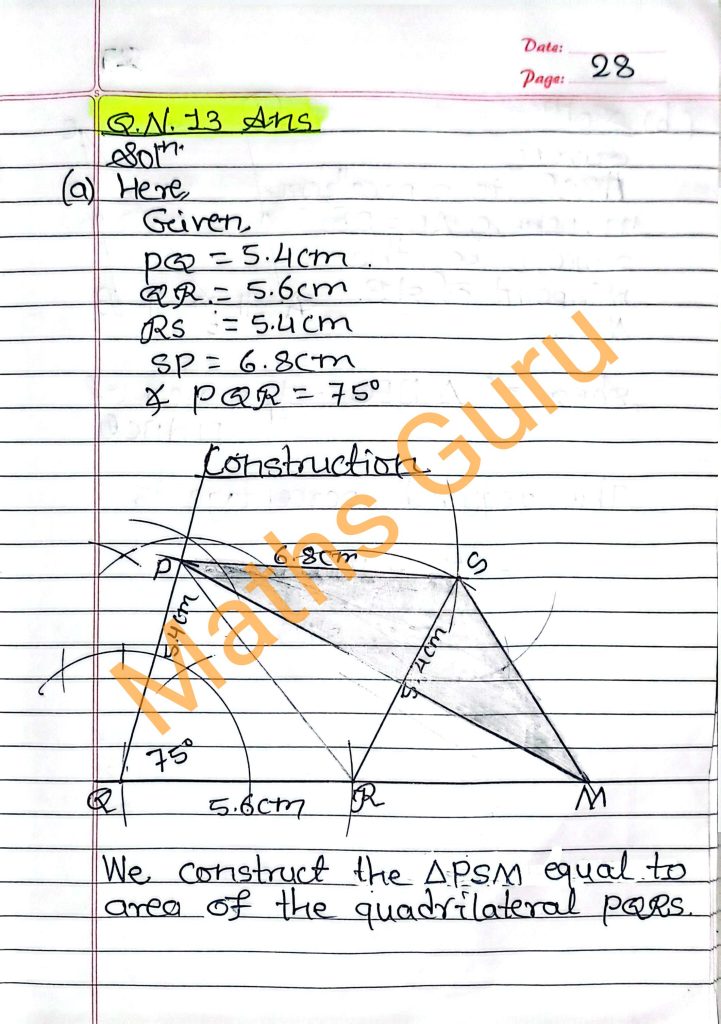 Date:
Page: 28
Q.N. 13 Ans
Soln.
(a) Here,
Given,
PQ = 5.4cm.
QR = 5.6cm
RS = 5.4cm
SP = 6.8cm
∡ PQR = 75°
Construction
P 6.8cm S
5.4cm
5.4cm
75°
Q 5.6cm R M
Maths Guru
We construct the ΔPSM equal to
area of the quadrilateral PQRS.